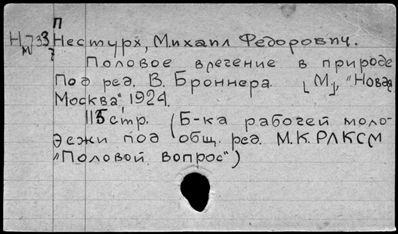 П
Н 733 Нестурх, Михаил Федорович.
м
?
Половое влечение в природе
Под ред. В. Броннера. [М], "Новая
Москва", 1924.
115 стр. (Б-ка рабочей моло-
дежи под общ. ред. М.К. РЛКСМ
"Половой вопрос")